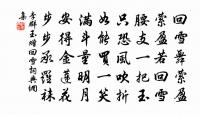 回雪舞縈盈
縈盈若回雪
腰支一把玉
只恐風吹折
如能買一笑
滿斗量明月
安得金蓮花
步步承羅襪
李群玉贈回雪詞典網
集